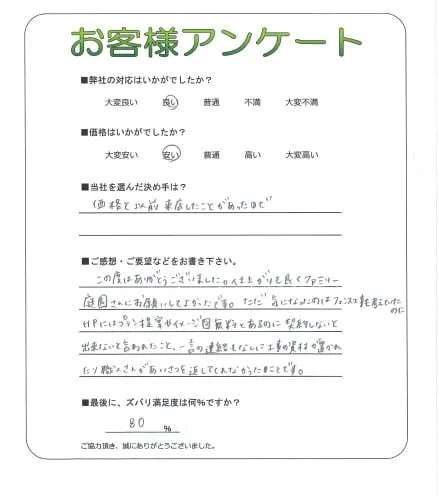 お客様アンケート
■弊社の対応はいかがでしたか?
大変良い 良い 普通 不満 大変不満
■価格はいかがでしたか?
大変安い 安い 普通 高い 大変高い
■当社を選んだ決め手は?
価格と以前来店したことがあったので
■ご感想・ご要望などをお書き下さい。
この度はありがとうございました。仕上がりも良くファミリー
庭園さんにお願いしてよかったです。ただ気になったのはフェンス工事を考えていた
のに
HPにはプラン提案やイメージ図無料とあるのに契約しないと
出来ないと言われたこと、一言の連絡もなしに工事の資材が置かれ
たり職人さんがあいさつを返してくれなかったことです。
■最後に、ズバリ満足度は何%ですか?
80 %
ご協力頂き、誠にありがとうございました。